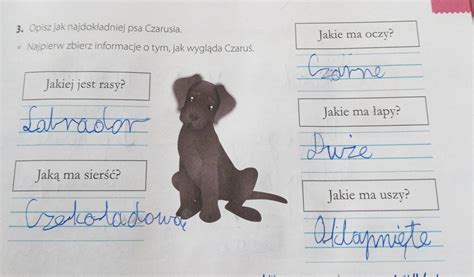 3. Opisz jak najdokładniej psa Czarusia.
• Najpierw zbierz informacje o tym, jak wygląda Czaruś.
Jakiej jest rasy?
Labrador
Jaką ma sierść?
Czekoladową
Jakie ma oczy?
Czarne
Jakie ma łapy?
Duże
Jakie ma uszy?
Oklapnięte